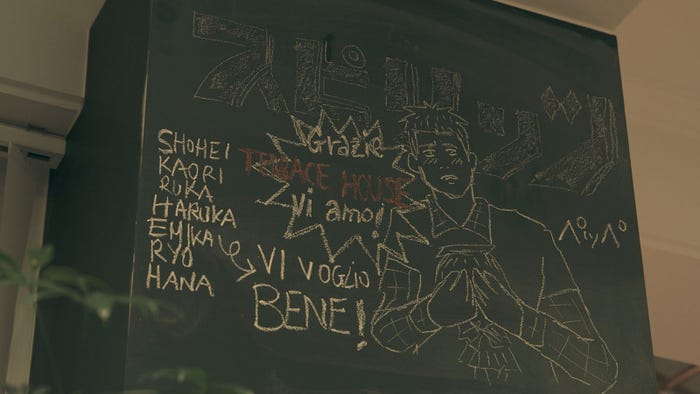 スピリッツ
SHOHEI
KAORI
RUKA
HARUKA
EMIKA
RYO
HANA
Grazie
TERRACE HOUSE
Vi amo!
VI VOGLIO
BENE!
ペッペ